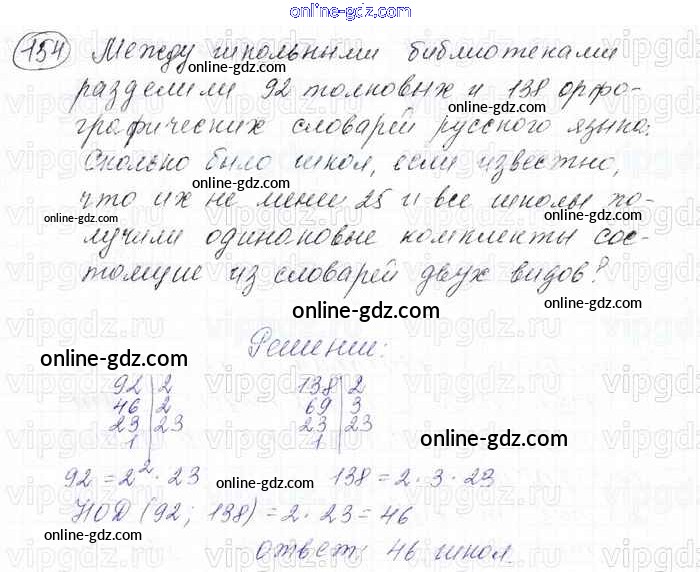 online-gdz.com
154 Между школьными библиотеками
online-gdz.com
разделили 92 толковых и 138 орфо-
online-gdz.com
графических словарей русского языка.
online-gdz.com
Сколько было школ, если известно,
online-gdz.com
что их не менее 25 и все школы по-
online-gdz.com
лучили одинаковые комплекты сос-
online-gdz.com
тоящие из словарей двух видов?
online-gdz.com
online-gdz.com
Решение:
online-gdz.com
92 2 138 2
46 2 69 3
23 23 23 23
1 1
online-gdz.com
92 = 2² · 23 138 = 2 · 3 · 23
online-gdz.com
НОД (92; 138) = 2 · 23 = 46
online-gdz.com
online-gdz.com
ответ: 46 школ.
vipgdz.ru